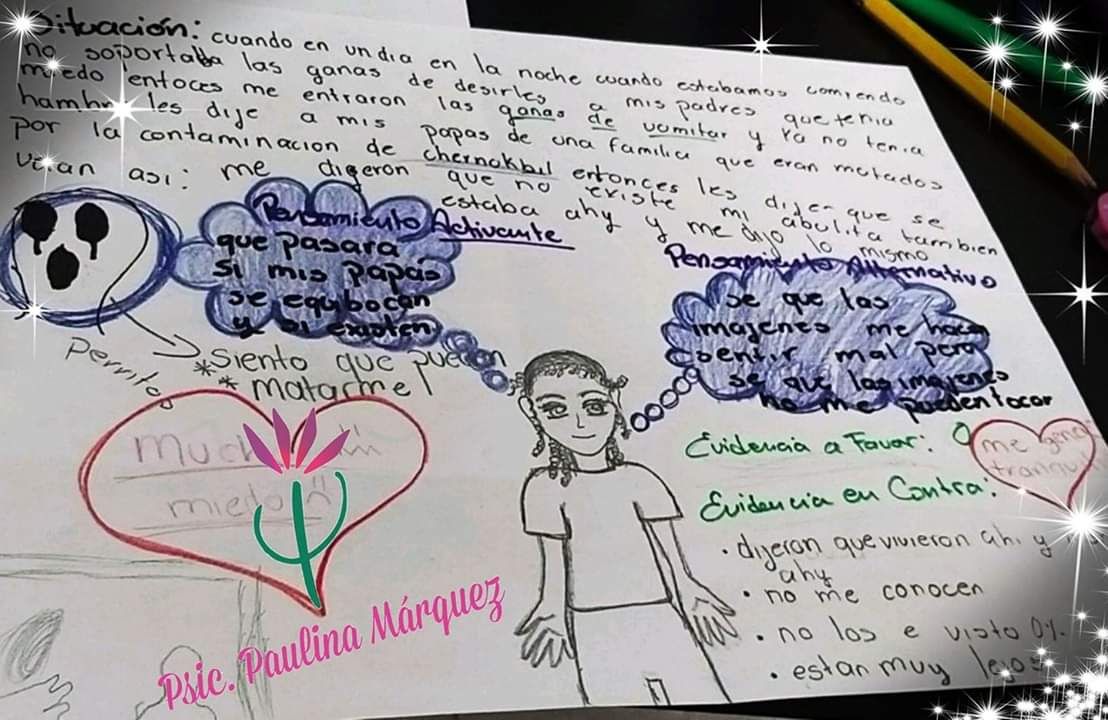 Situación: cuando en un dia en la noche cuando estabamos comiendo
no soportaba las ganas de desirles a mis padres que tenia
miedo entoces me entraron las ganas de vomitar y ya no tenia
hambre les dije a mis papas de una familia que eran matados
por la contaminacion de chernokbil entonces les dijen que se
veian asi: me digeron que no existe mi abulita tambien
estaba ahy y me dijo lo mismo
Pensamiento Activante
que pasara
si mis papás
se equbocan
y si existen
Pensamiento Alternativo
se que las
imajenes me hacen
sentir mal pero
se que las imajenes
no me pueden tocar
perrito
*Siento que pueden
* Matarme
miedo
Evidencia a Favor: 0
me
Evidencia en Contra:
• dijeron que vivieron ahi y
ahy
• no me conocen
• no los e visto 0%
• estan muy lejos
Psic. Paulina Márquez